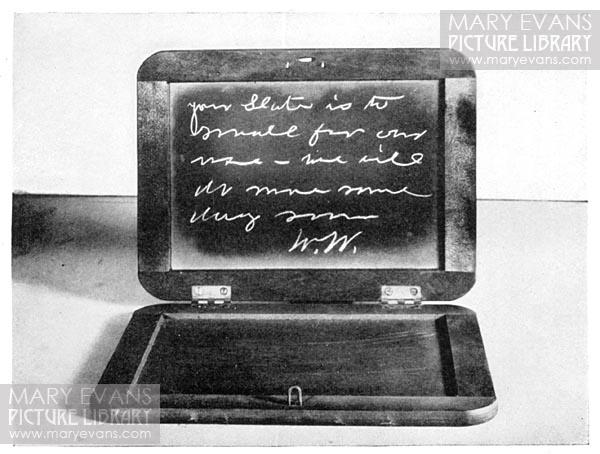 MARY EVANS
PICTURE LIBRARY
www.maryevans.com
your Slate is to
small for our
use – we will
do more some
day soon
W.W.
MARY EVANS
PICTURE LIBRARY
www.maryevans.com